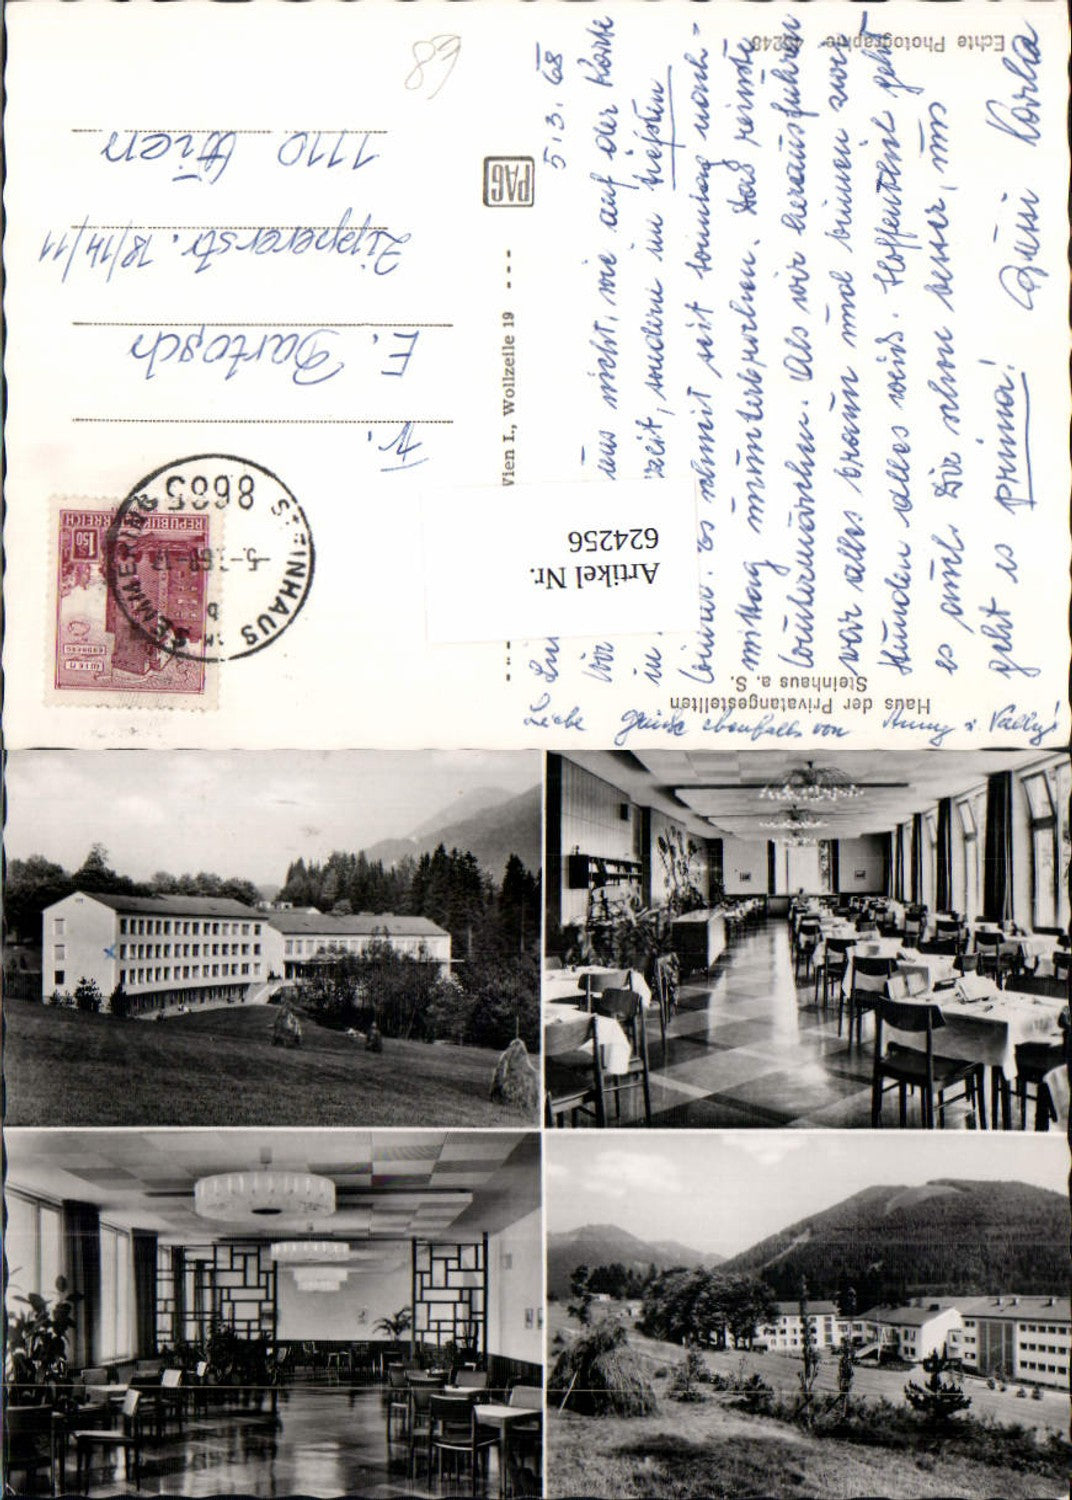 Haus der Privatangestellten
Steinhaus a. S.
Echte Photographie
Wien I., Wollzeile 19
PAG
5.3.68
uns nicht, wie auf der Karte
zeit, sondern im tiefsten
Winter. Es schneit seit Sonntag nach-
mittag ununterbrochen. Das reinste
Wintermärchen. Als wir herausfuhren
war alles braun und binnen zwei
Stunden alles weiß. Hoffentlich geht
es auch Dir schon besser, uns
geht es prima!
Susi Karla
Liebe Grüße ebenfalls von Anny u. Vally!
Fr.
E. Bartosch
Zippererstr. 18/14/11
1110 Wien
89
REPUBLIK ÖSTERREICH
1.50
WIEN
ERDBERG
STEINHAUS AM SEMMERING
8685
Artikel Nr.
624256